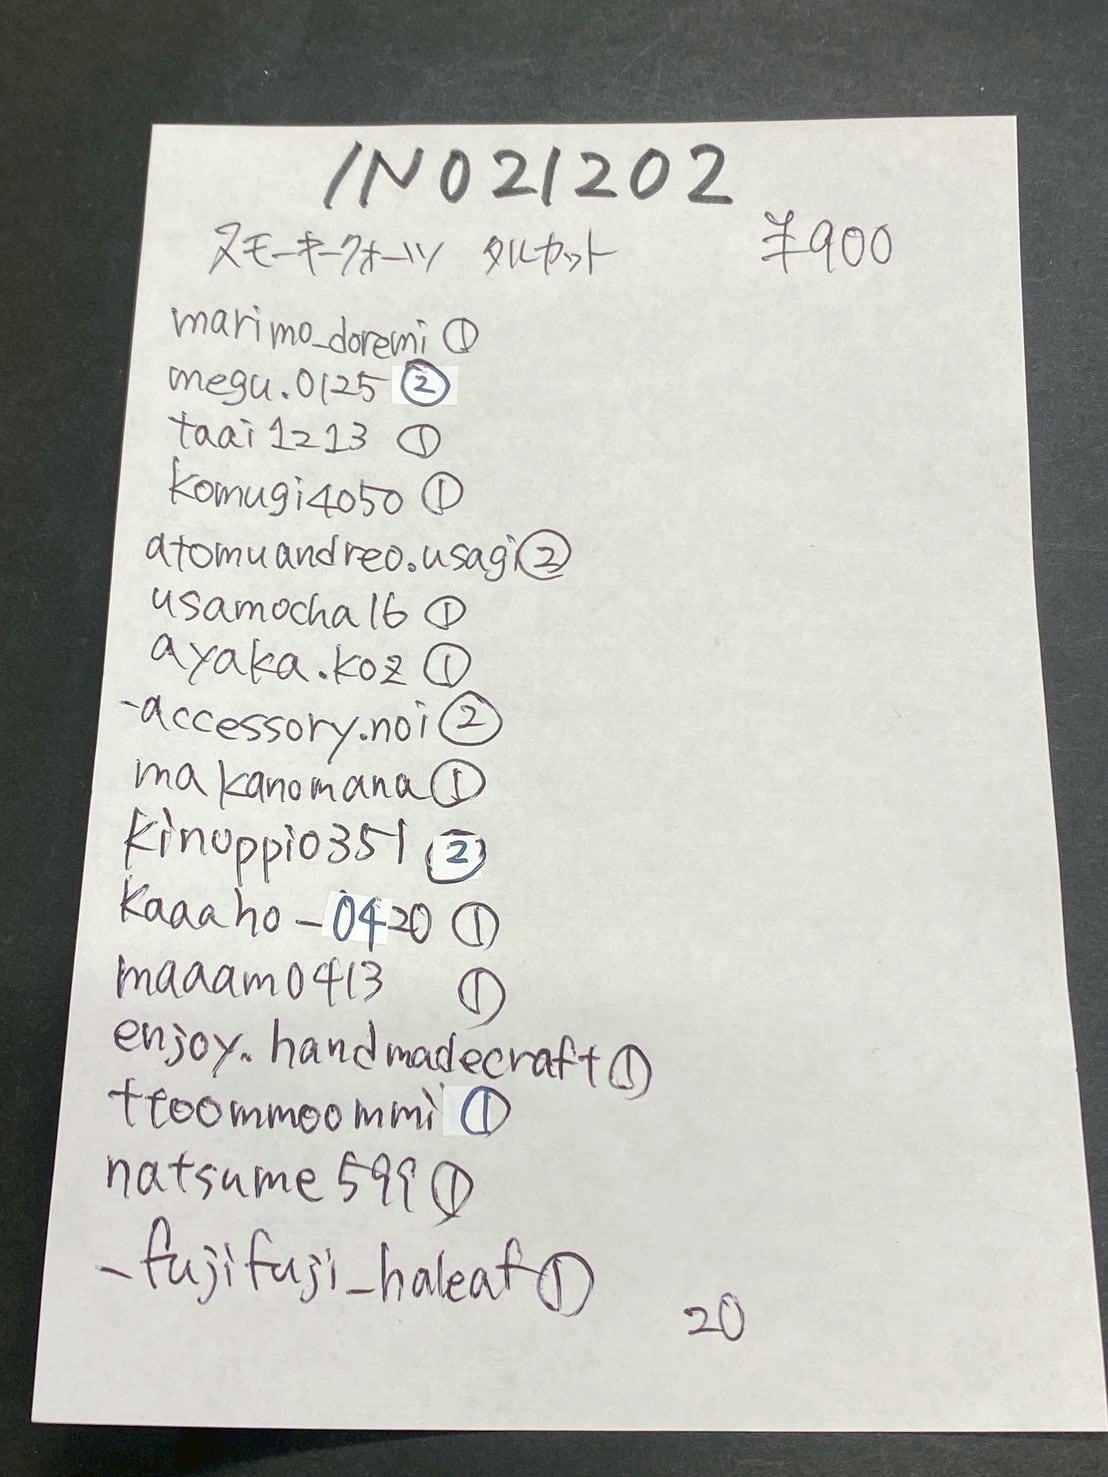 IN021202
スモーキークォーツ タルカット ¥900
marimo_doremi ①
megu.0125 ②
taai1213 ①
komugi4050 ①
atomuandreo.usagi ②
usamocha16 ①
ayaka.koz ①
-accessory.noi ②
makanomana ①
kinoppio351 ②
kaaaho-0420 ①
maaam0413 ①
enjoy.handmadecraft ①
ttoommoommi ①
natsume599 ①
-fujifuji_haleaf ①
20